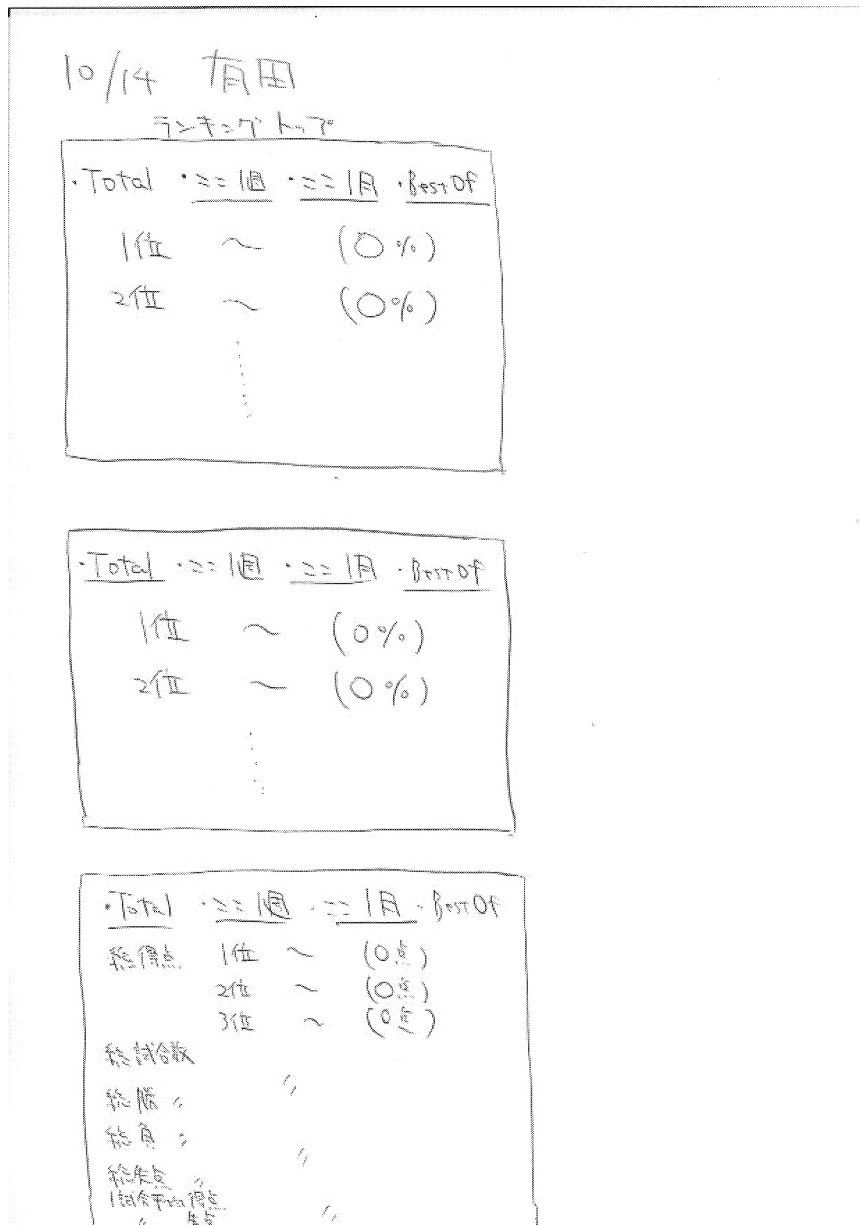 10/14 有田
ランキングトップ
・Total ・ここ1週 ・ここ1月 ・Best Of
1位 〜 (○%)
2位 〜 (○%)
・Total ・ここ1週 ・ここ1月 ・Best Of
1位 〜 (○%)
2位 〜 (○%)
・Total ・ここ1週 ・ここ1月 ・Best Of
総得点 1位 〜 (○点)
2位 〜 (○点)
3位 〜 (○点)
総試合数
総勝 〃 〃
総負 〃
総失点 〃 〃
1試合平均得点
〃 失点 〃